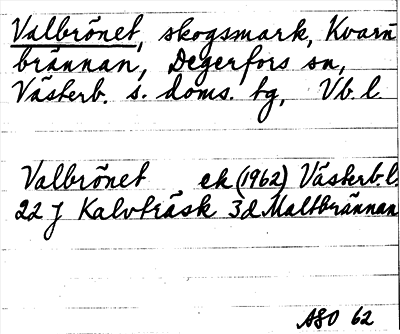 Valbrönet, skogsmark, Kvarn
brännan, Degerfors sn,
Västerb. s. doms. tg, Vb. l
Valbrönet ek (1962) Västerb. l.
22 J Kalvträsk 3d Maltbrännan
ASO 62